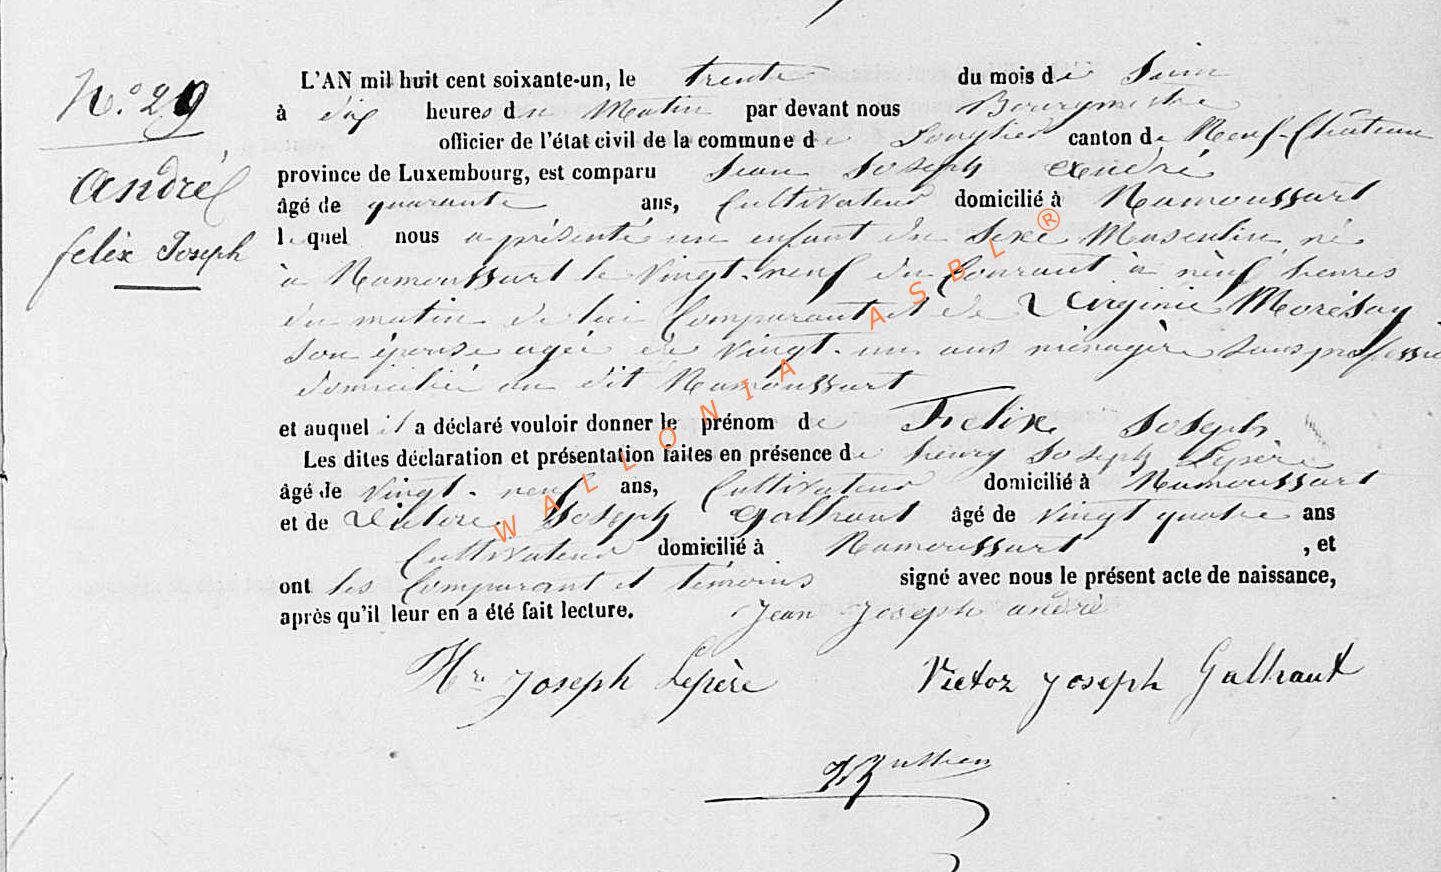 N.° 29
André
felix Joseph
L'AN mil huit cent soixante-un, le trente du mois de Juin
à dix heures du Matin par devant nous Bourgmestre
officier de l'état civil de la commune de Longlier canton de Neuf-Château
province de Luxembourg, est comparu Jean Joseph André
âgé de quarante ans, Cultivateur domicilié à Namoussart
lequel nous a présenté un enfant du Sexe Masculin né
à Namoussart le Vingt-neuf du Courant à neuf heures
du matin de lui Comparant et de Virginie Morésay
Son épouse agée de vingt-un ans ménagère Sans professi
domicilié au dit Namoussart
et auquel il a déclaré vouloir donner le prénom de Felix Joseph
Les dites déclaration et présentation faites en présence de henry Joseph Lepère
âgé de Vingt-neuf ans, Cultivateur domicilié à Namoussart
et de Victor Joseph Galhaut âgé de Vingt quatre ans
Cultivateur domicilié à Namoussart , et
ont les Comparant et témoins signé avec nous le présent acte de naissance,
après qu'il leur en a été fait lecture. Jean Joseph andré
Hri Joseph Lepère Victor Joseph Galhaut
WALLONIA ASBL ®